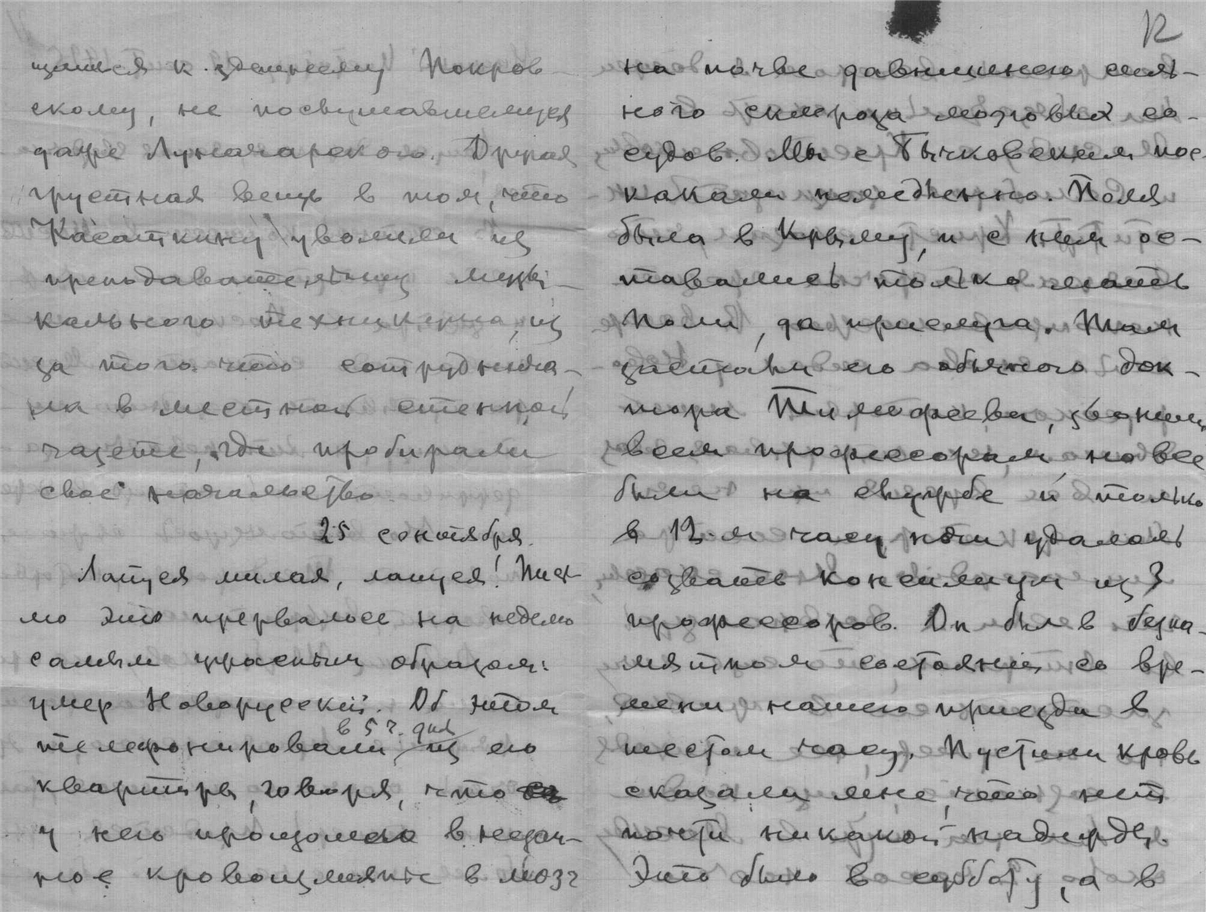 щаяся к здешнему Покров-
скому, не послушавшемуся
даже Луначарского. Другая
грустная вещь в том, что
Касаткину уволили из
преподавательниц музы-
кального техникума, из
за того что сотруднича-
ла в местной стенной
газете, где пробирали
свое начальство.
25 сентября.
Лапуся милая, лапуся! Пись-
мо это прервалось на неделю
самым грустным образом:
умер Новорусский. Об этом
телефонировали в 5 ч. дня из его
квартиры, говоря, что
у него произошло внезап-
ное кровоизлияние в мозг
12
на почве давнишнего силь-
ного склероза мозговых со-
судов. Мы с Бычковским пос-
какали немедленно. Поля
была в Крыму, и с ним ос-
тавались только мать
Поли, да прислуга. Там
застали его обычного док-
тора Тимофеева, звонили
всем профессорам, но все
были на службе и только
в 12-м часу ночи удалось
созвать консилиум из 3
профессоров. Он был в беспа-
мятном состоянии со вре-
мени нашего приезда в
шестом часу. Пустили кровь
сказали мне, что нет
почти никакой надежды.
Это было в субботу, а в